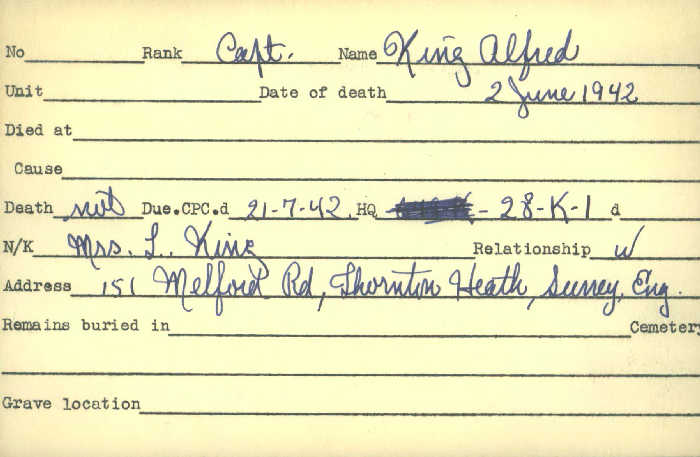 No Rank Capt. Name King Alfred
Unit Date of death 2 June 1942
Died at
Cause
Death not Due.CPC.d 21-7-42 HQ - 28-K-1 d
N/K Mrs. L. King Relationship W
Address 151 Melford Rd, Thornton Heath, Surrey, Eng.
Remains buried in Cemetery
Grave location